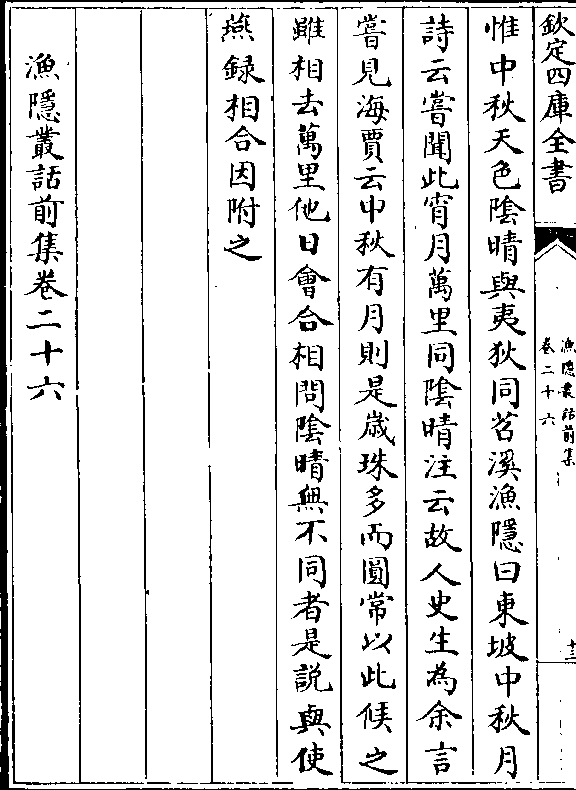 欽定四庫全書
漁隱叢話前集
卷二十六
十三
惟中秋天色陰晴與夷狄同苕溪漁隱曰東坡中秋月
詩云嘗聞此宵月萬里同陰晴注云故人史生為余言
嘗見海賈云中秋有月則是歳珠多而圓常以此候之
雖相去萬里他日會合相問陰晴無不同者是説與使
燕録相合因附之
漁隱叢話前集卷二十六